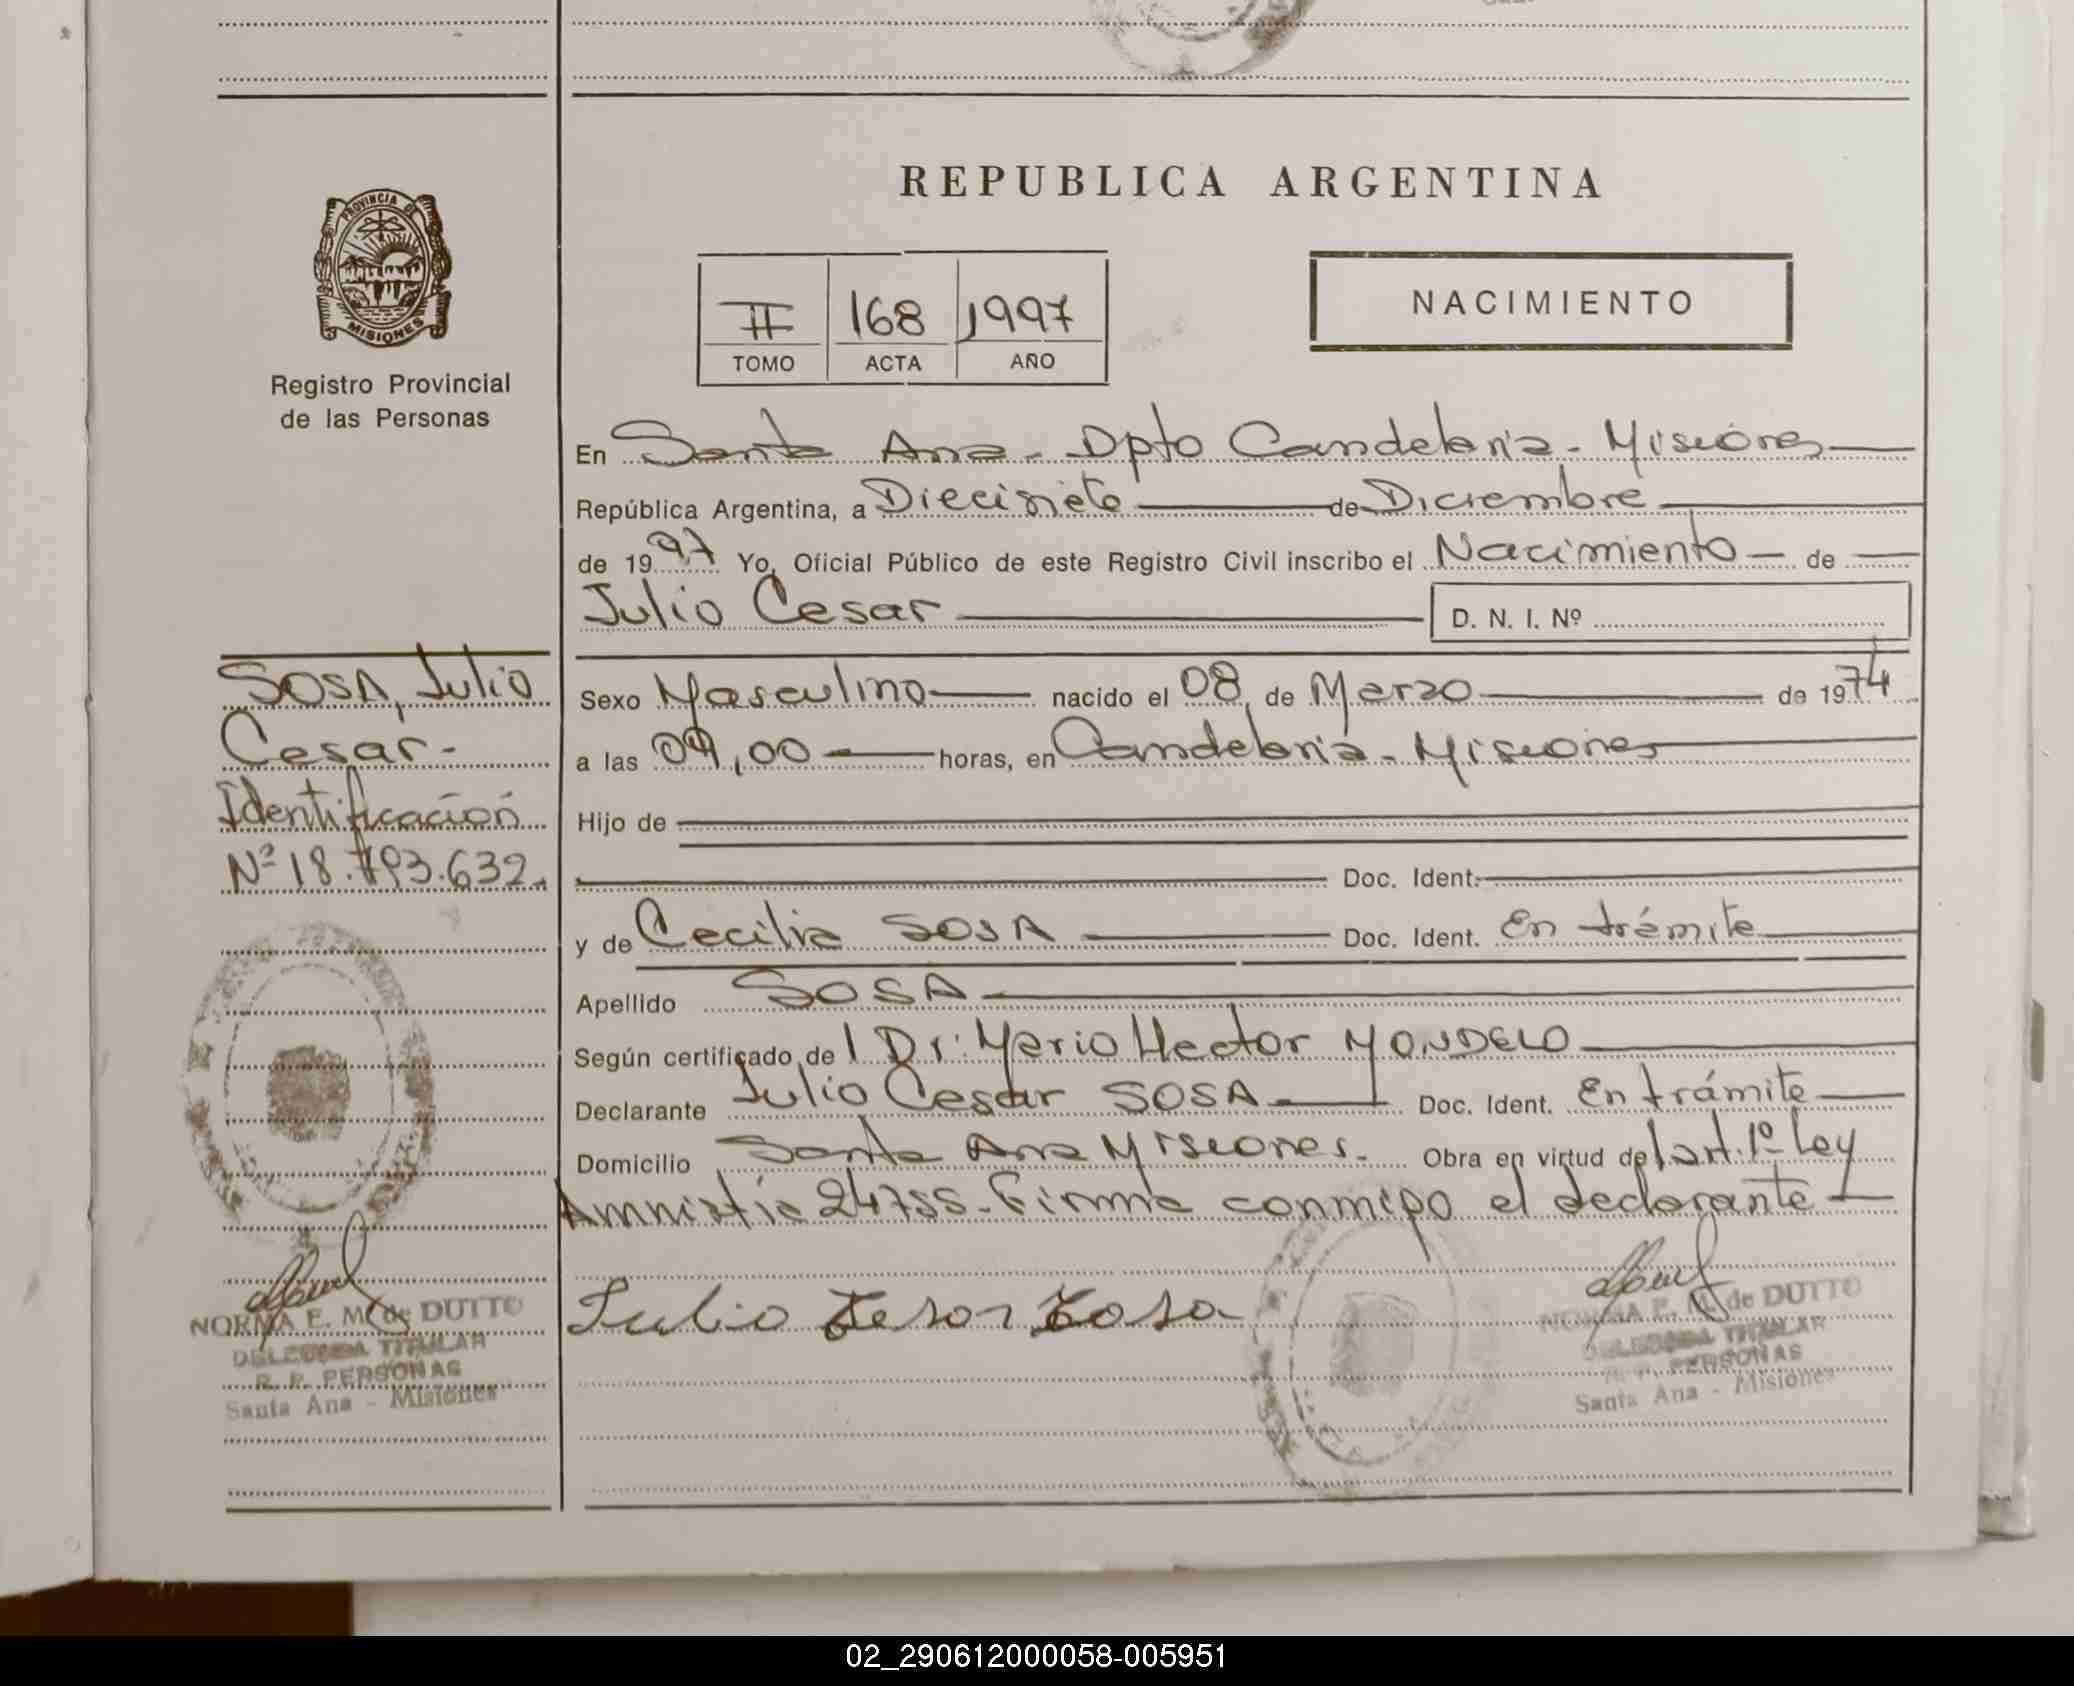 REPUBLICA ARGENTINA
PROVINCIA DE
MISIONES
Registro Provincial
de las Personas
II 168 1997
TOMO ACTA AÑO
NACIMIENTO
En Santa Ana - Dpto Candelaria - Misiones
República Argentina, a Diecisiete de Diciembre
de 1997 Yo, Oficial Público de este Registro Civil inscribo el Nacimiento de
Julio Cesar
D. N. I. Nº
SOSA, Julio
Cesar-
Identificación
Nº 18.793.632.
Sexo Masculino nacido el 08 de Marzo de 1974
a las 09,00 horas, en Candelaria - Misiones
Hijo de
Doc. Ident.
y de Cecilia SOSA Doc. Ident. En trámite
Apellido SOSA
Según certificado de l Dr. Mario Hector MONDELO
Declarante Julio Cesar SOSA Doc. Ident. En trámite
Domicilio Santa Ana Misiones. Obra en virtud del art. 1º Ley
Amnistía 24755. Firma conmigo el declarante
Julio Sesar Sosa
NORMA E. M. de DUTTO
DELEGADA TITULAR
R. P. PERSONAS
Santa Ana - Misiones
NORMA E. M. de DUTTO
DELEGADA TITULAR
R. P. PERSONAS
Santa Ana - Misiones
02_290612000058-005951